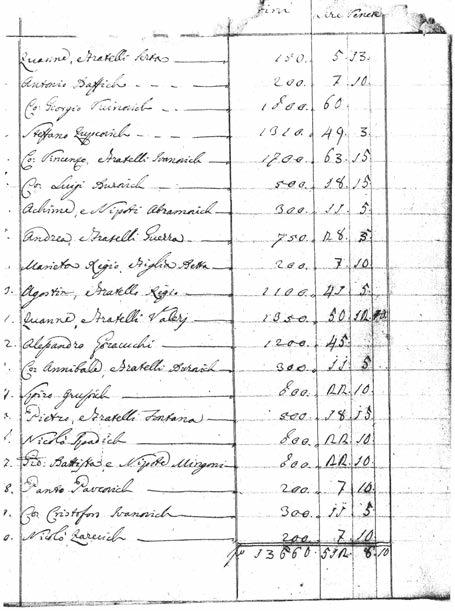 fiorini Lire Peneze
Zuanne, e Fratelli Verla 150. 5 13.
Antonio Baffich 200. 7 10.
Co: Giorgio Vuinovich 1600. 60
Steffano 1310. 49 3.
Co: Vincenzo, e Fratelli Ivanovich 1700. 63. 15
Co: Luigi Burovich 500. 18. 15
Achimo, e Nipoti Abramovich 300. 11 5.
Andrea, e Fratelli Guerra 750. 28. 5
Marieta Regio, Figlia Betta 200. 7 10.
Agostin, e Fratello Regio 1100. 41 5
Zuanne, e Fratelli Valerj 1350. 50 12
Alessandro 1200. 45.
Co: Annibale, e Fratelli Burovich 300. 11 5
Spiro 600. 22. 10.
Pietro, e Fratelli Fontana 500. 18 15
Nicolò Spadich 600. 22 10
Gio: Battista, e Nipote 600. 22. 10.
Panto Pavcovich 200. 7 10.
Co: Cristoforo Ivanovich 300. 11 5
Nicolò Zarevich 200. 7 10.
13660. 512 8 10